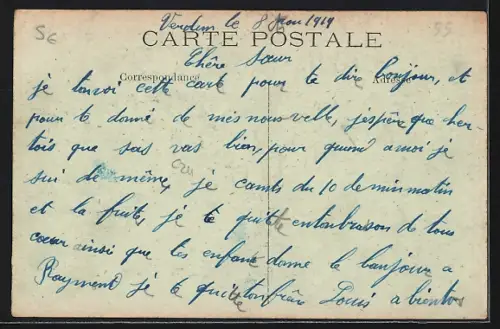 Verdun le 8 Mars 1919
CARTE POSTALE
Chère Sœur
Correspondance
Adresse
je tanvoi cette carte pour te dire bonjour, et
pour te doné de mes nouvelle, jespère que her-
tois que sas vas bien, pour quand a moi je
sui de même, je du 10 demin matin
et la fruite, je te quitte entanbrasan de tous
cœur ainsi que tes enfant done le bonjour a
Raymend je te quitte ton frère Louis a bientos